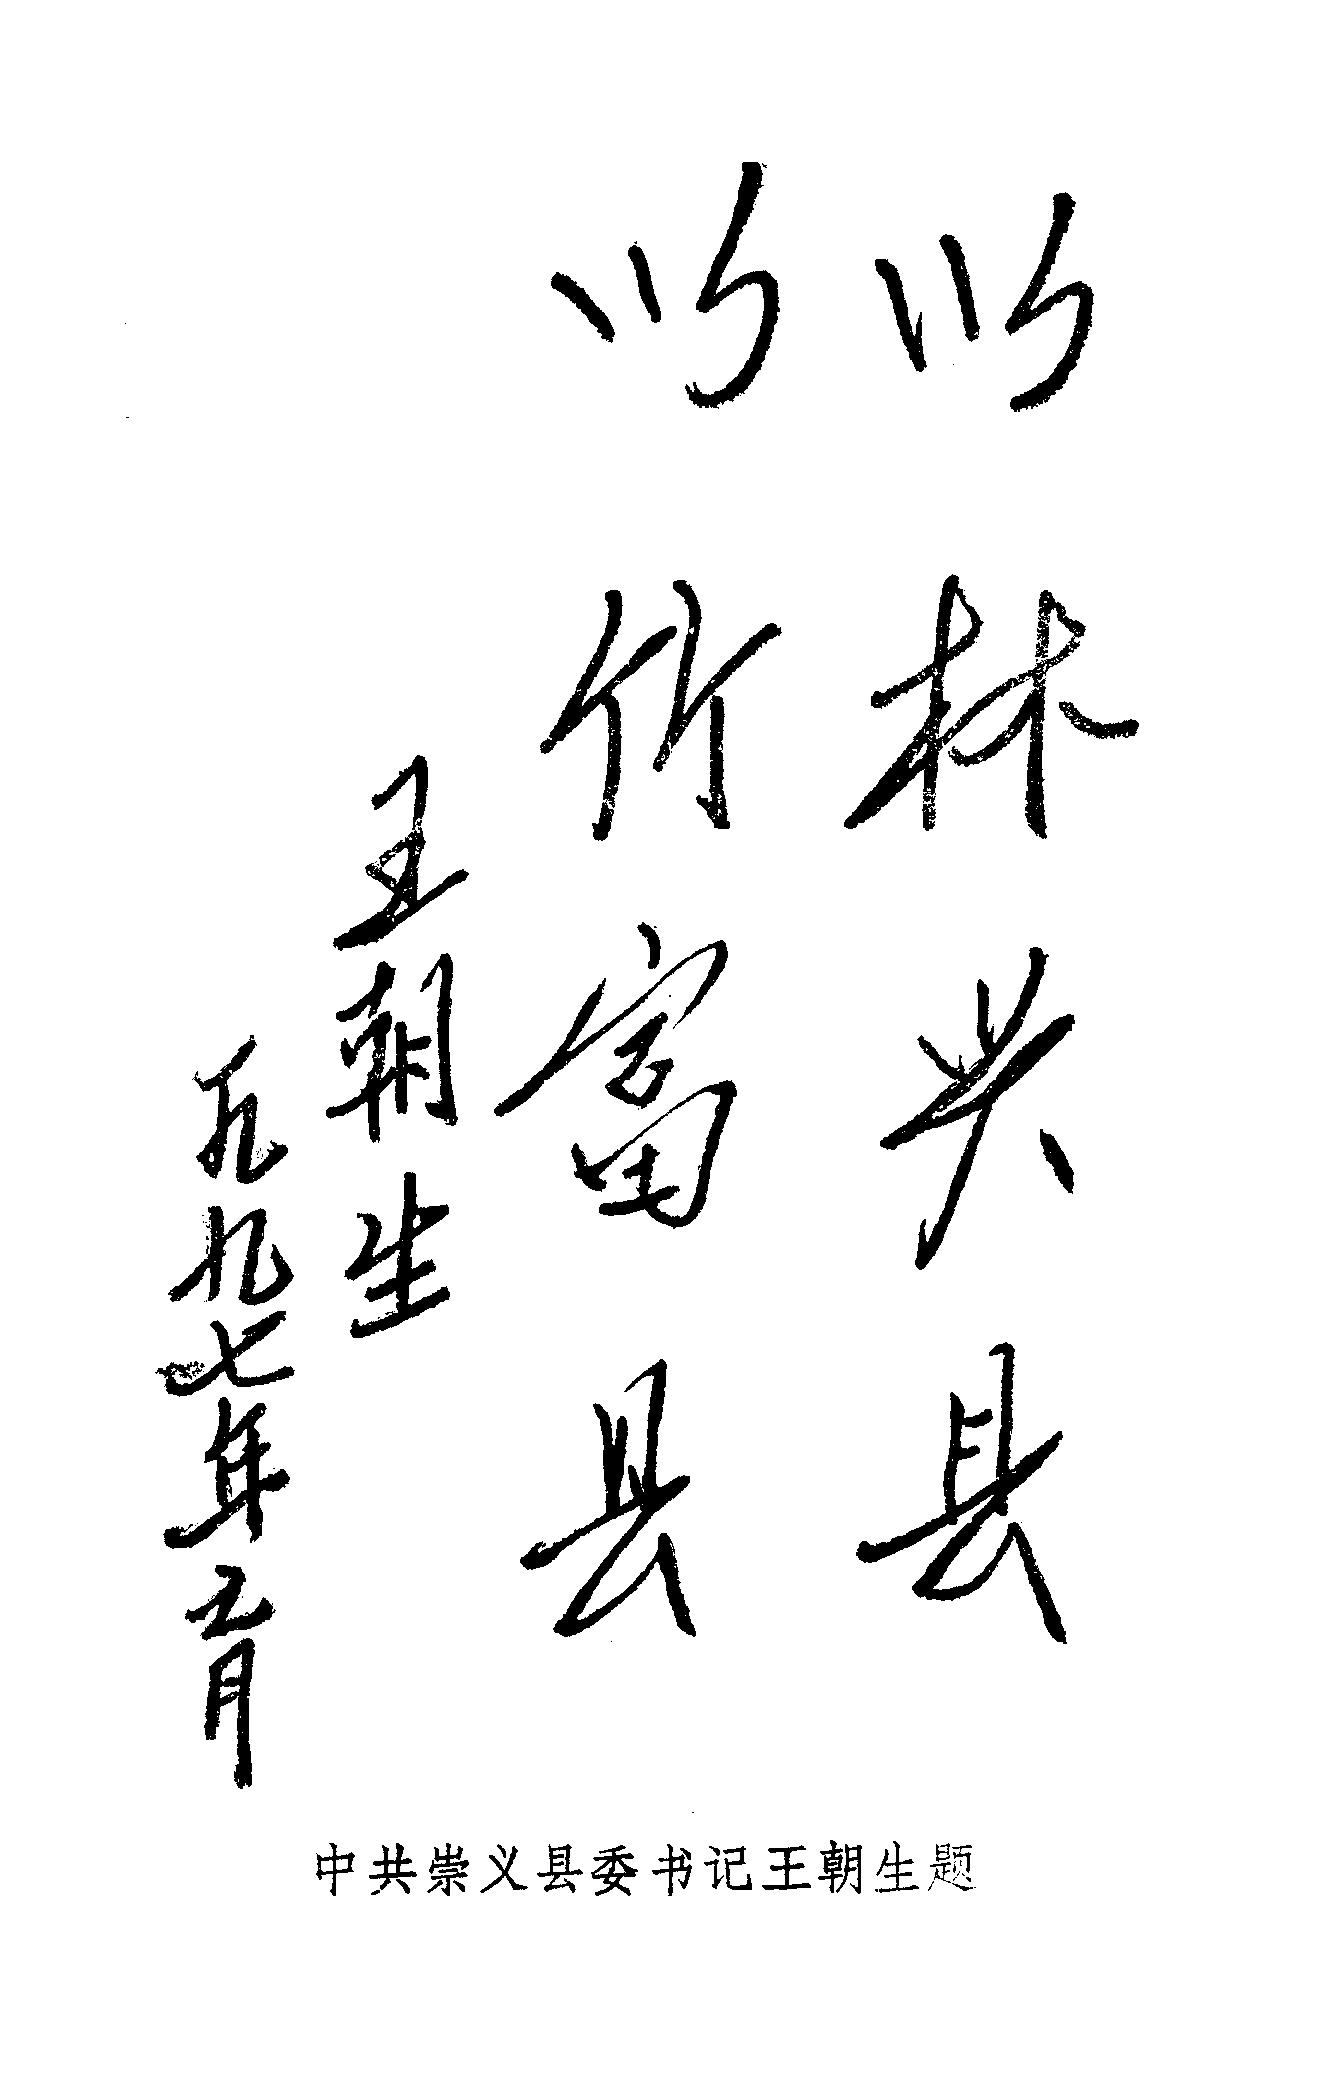 以林兴县
以竹富县
王朝生
一九九七年五月
中共崇义县委书记王朝生题